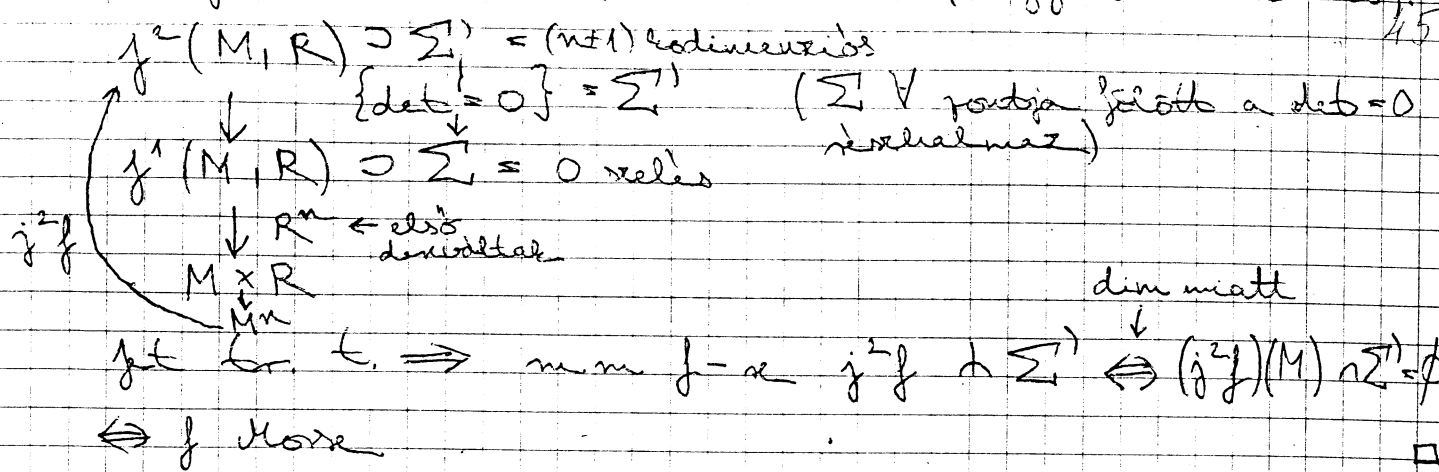 45
j²(M, R) ⊃ Σ' = (n+1) kodimenziós
{det = 0} = Σ' (Σ ∀ pontja fölött a det = 0
↓ ↓ részhalmaz)
j¹(M, R) ⊃ Σ = 0 szelés
j²f ↓ Rⁿ ← első
deriváltak
M × R
↓ dim miatt
Mⁿ ↓
Jet tr. t. ⟹ m.m f-re j²f ⋔ Σ' ⟺ (j²f)(M) ∩ Σ' = ∅
⟺ f Morse □